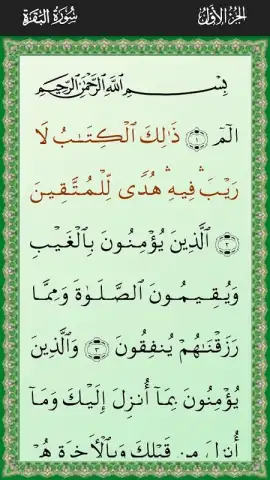 الجزء الأول سورة البقرة
بِسْمِ ٱللَّهِ ٱلرَّحْمَٰنِ ٱلرَّحِيمِ
الٓمٓ ۝١ ذَٰلِكَ ٱلْكِتَٰبُ لَا
رَيْبَ ۛ فِيهِ ۛ هُدًى لِّلْمُتَّقِينَ
۝٢ ٱلَّذِينَ يُؤْمِنُونَ بِٱلْغَيْبِ
وَيُقِيمُونَ ٱلصَّلَوٰةَ وَمِمَّا
رَزَقْنَٰهُمْ يُنفِقُونَ ۝٣ وَٱلَّذِينَ
يُؤْمِنُونَ بِمَآ أُنزِلَ إِلَيْكَ وَمَآ
أُنزِلَ مِن قَبْلِكَ وَبِٱلْأَخِرَةِ هُمْ